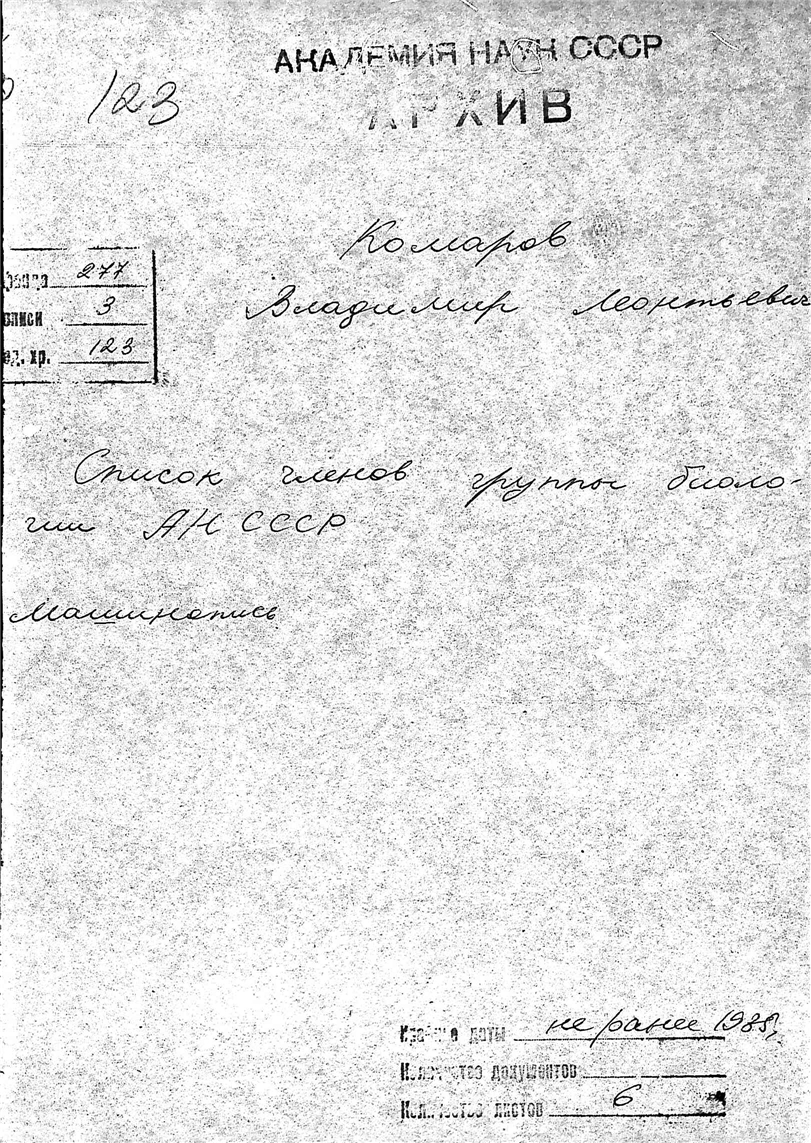 АКАДЕМИЯ НАУК СССР
АРХИВ
123
Комаров
Владимир Леонтьевич
фонда 277
описи 3
ед. хр. 123
Список членов группы биоло-
гии АН СССР
Машинопись
Крайние даты не ранее
Количество документов
Количество листов 6